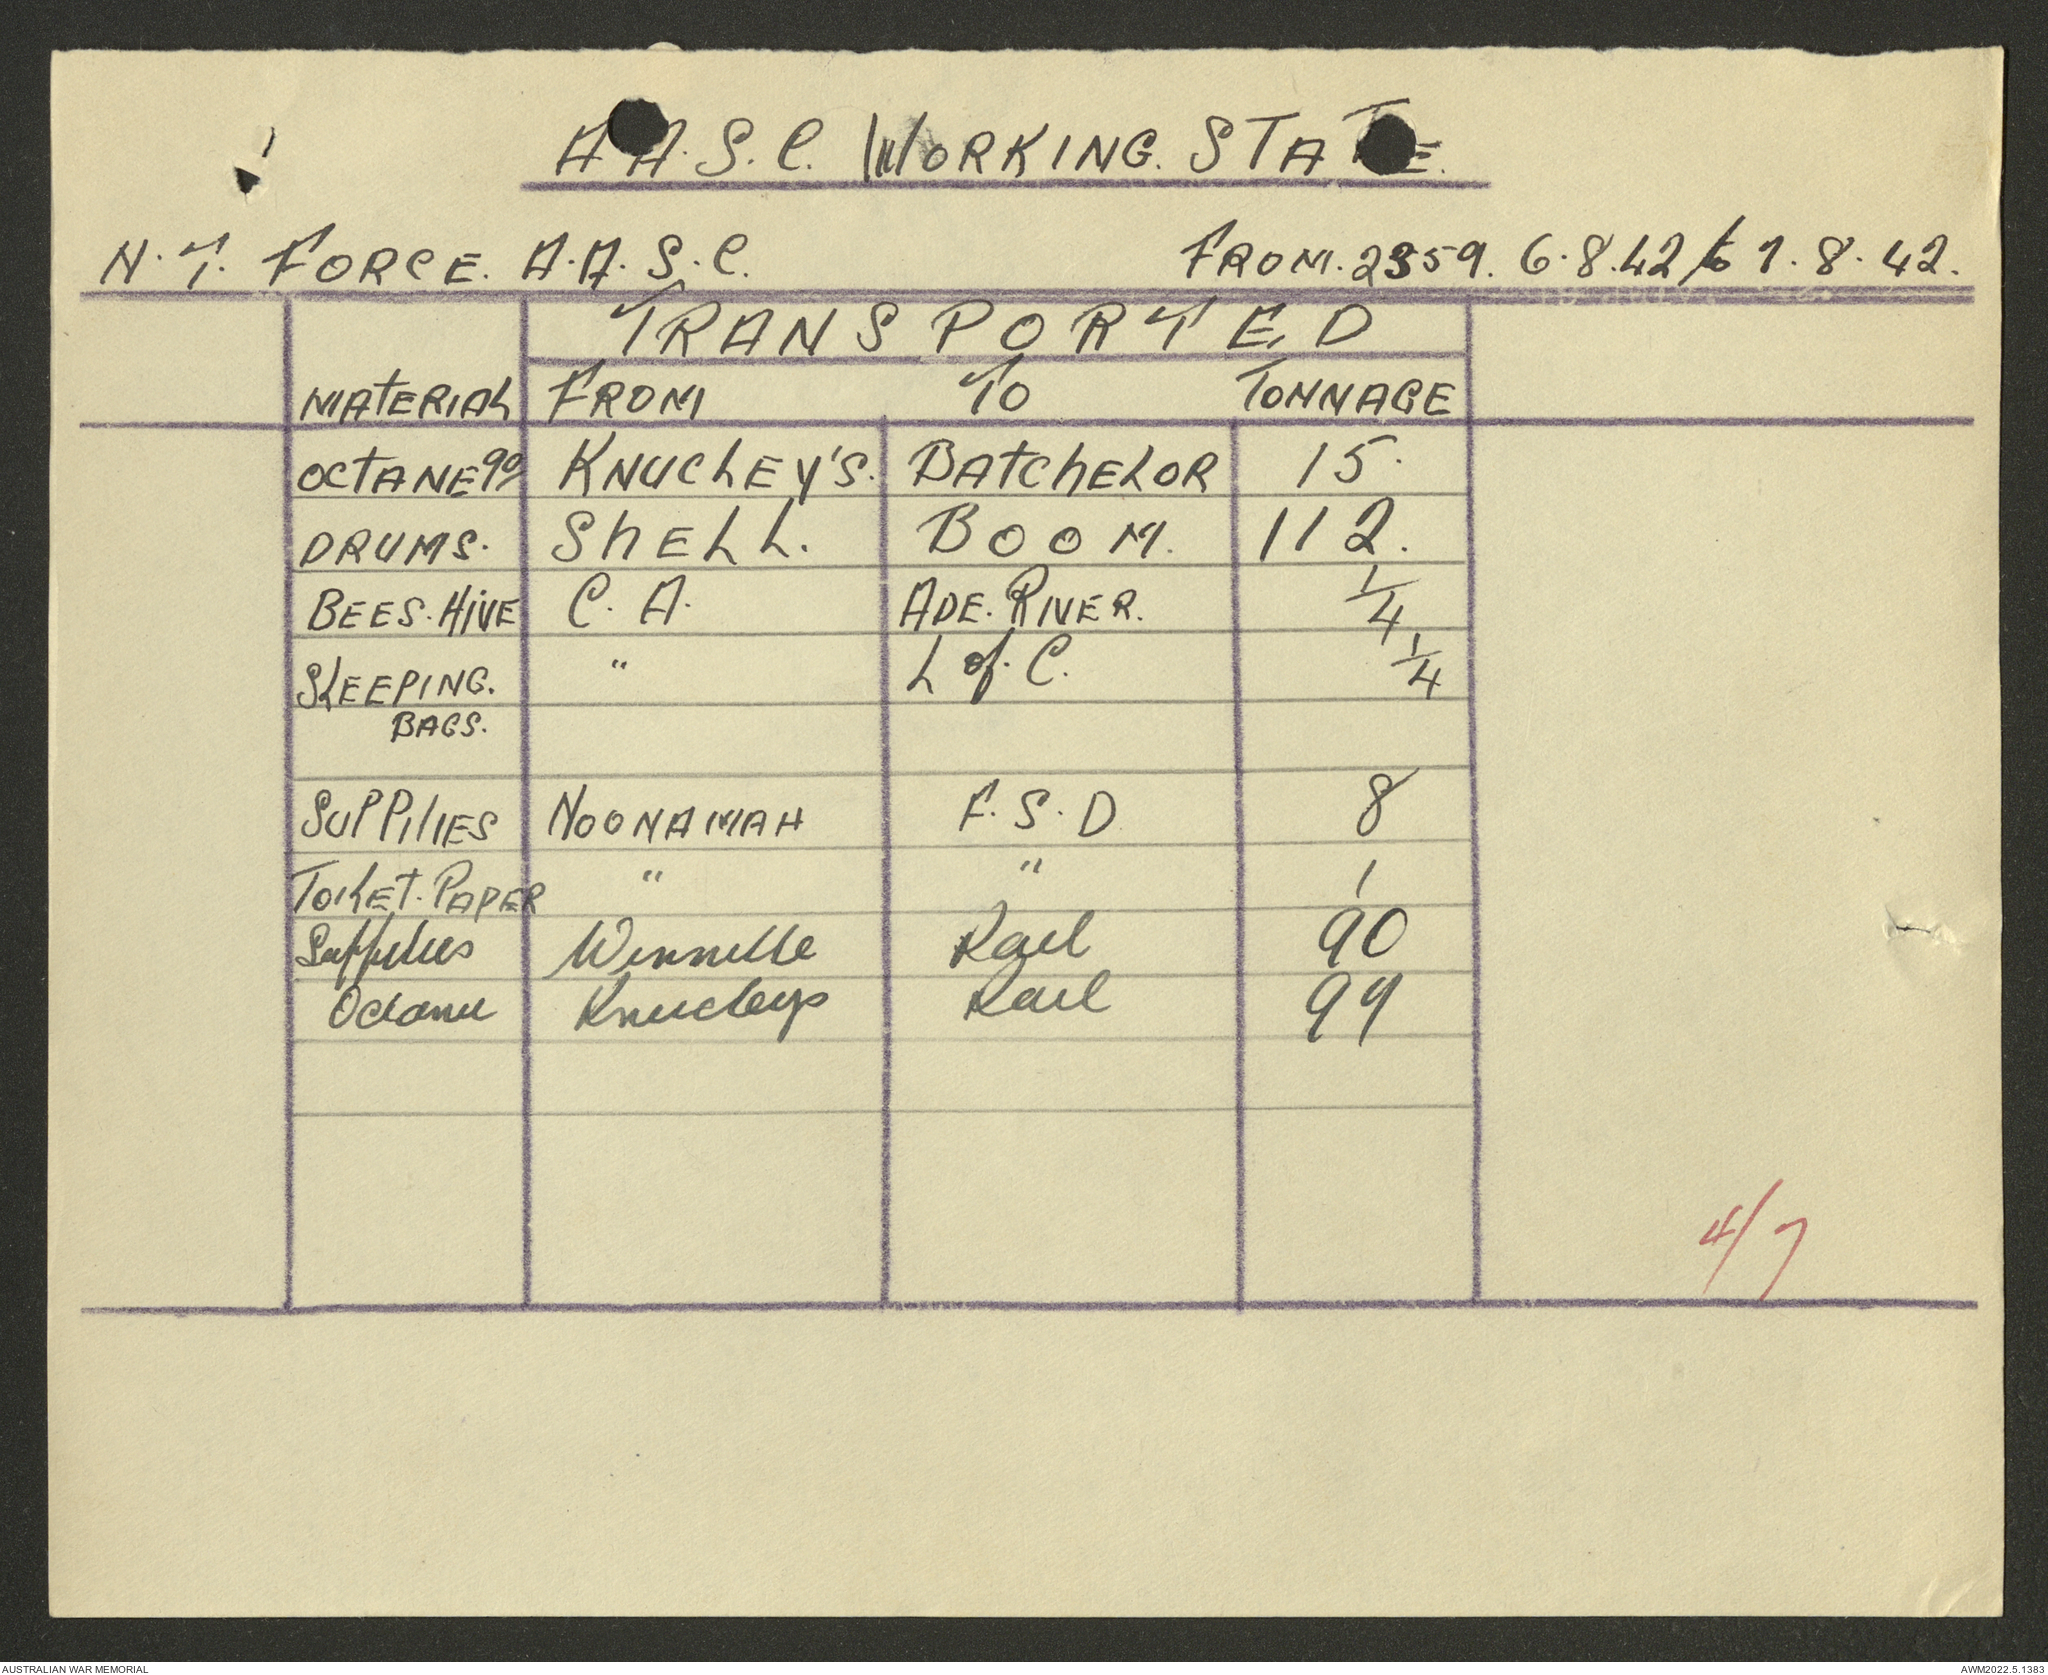 A.A.S.C. WORKING. STATE.
N.T. FORCE. A.A.S.C. FROM. 2359. 6.8.42 to 7.8.42.
TRANSPORTED
MATERIAL FROM TO TONNAGE
OCTANE 90 KNUCKEY'S. BATCHELOR 15.
DRUMS. SHELL. BOOM. 112.
BEES. HIVE C. A. ADE. RIVER. 1/4
SLEEPING. " L of. C. 1/4
BAGS.
SUPPLIES NOONAMAH F.S.D 8
TOILET. PAPER " " 1
Supplies Winnelle Rail 90
Octane Knuckeys Rail 99
4/7
AUSTRALIAN WAR MEMORIAL AWM2022.5.1383